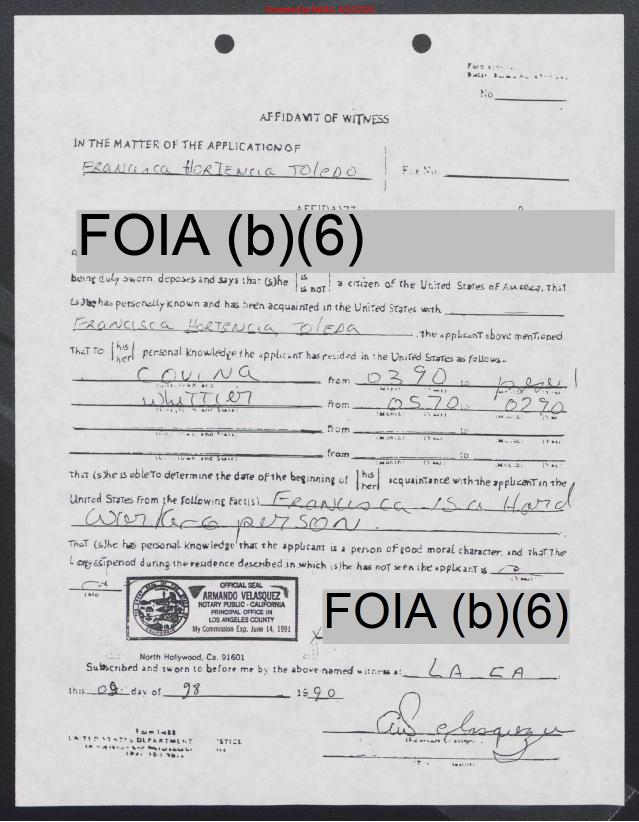 No
AFFIDAVIT OF WITNESS
IN THE MATTER OF THE APPLICATION OF
FRANCISCA HORTENCIA TOLEDO
File No.
AFFIDAVIT
FOIA (b)(6)
being duly sworn, deposes and says that (s)he is is not a citizen of the United States of America, that
(s)he has personally known and has been acquainted in the United States with
FRANCISCA HORTENCIA TOLEDA, the applicant above mentioned.
That to his her personal knowledge the applicant has resided in the United States as follows.
COVINA from 0390 to
Whittier from 0570 to 0290
from to
from to
That (s)he is able to determine the date of the beginning of his her acquaintance with the applicant in the
United States from the following fact(s) Francisca is a Hard
person.
That (s)he has personal knowledge that the applicant is a person of good moral character, and that the
period during the residence described in which (s)he has not seen the applicant is
OFFICIAL SEAL
ARMANDO VELASQUEZ
NOTARY PUBLIC - CALIFORNIA
PRINCIPAL OFFICE IN
LOS ANGELES COUNTY
My Commission Exp. June 14, 1991
FOIA (b)(6)
North Hollywood, Ca. 91601
Subscribed and sworn to before me by the above named witness at LA CA
this 09 day of 98 1990